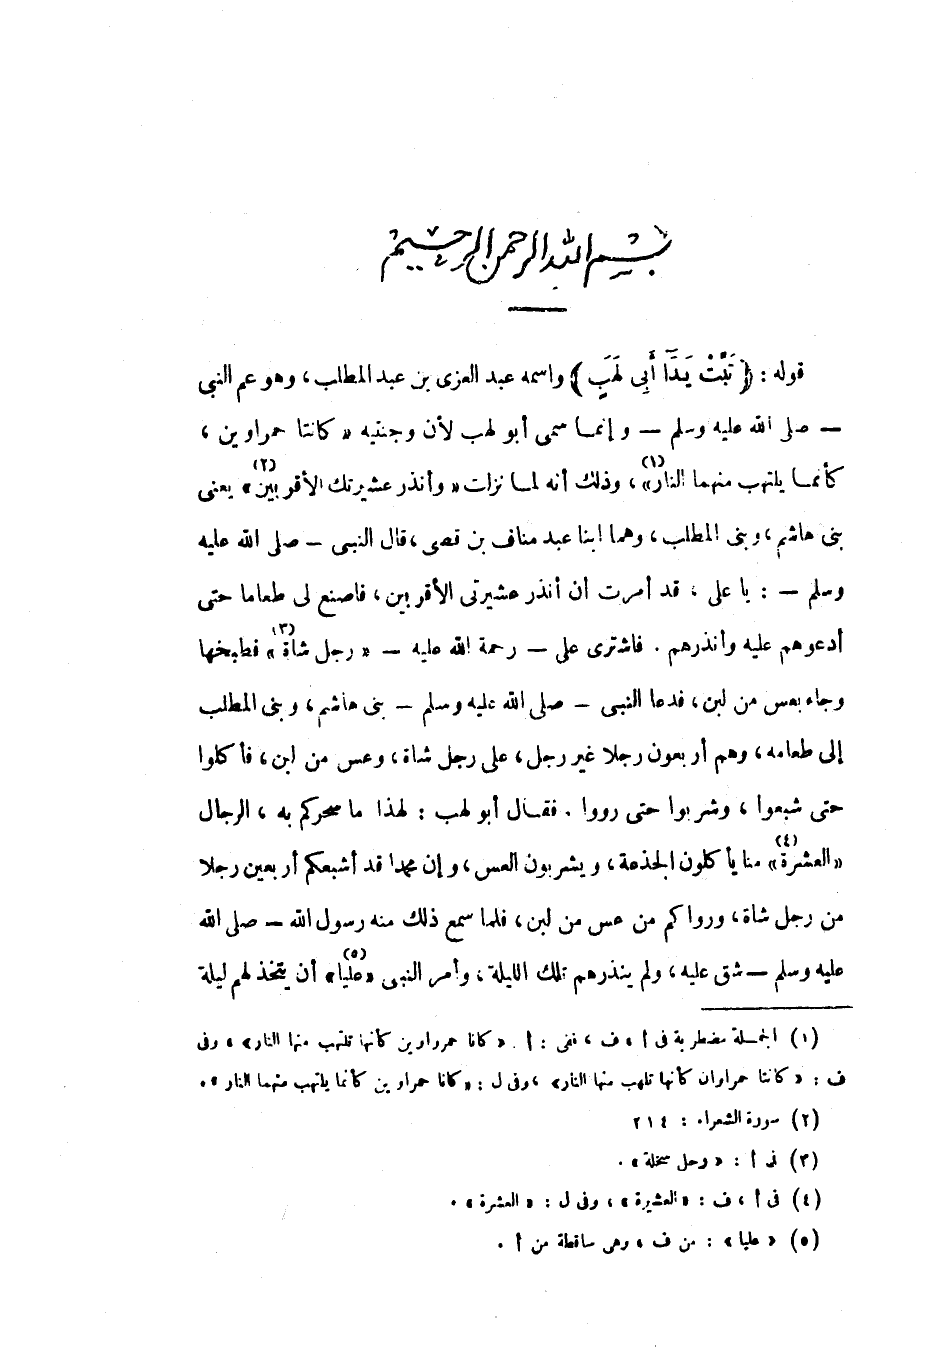 بسم الله الرحمن الرحيم
قوله : ﴿ تَبَّتْ يَدَآ أَبِى لَهَبٍ ﴾ واسمه عبد العزى بن عبد المطلب ، وهو عم النبى
— صلى الله عليه وسلم — وإنمـا سمى أبو لهب لأن وجنتيه « كانتا حمراوين ،
كأنمـا يلتهب منهما النار»(١) ، وذلك أنه لمـا نزلت « وأنذر عشيرتك الأقربين»(٢) يعنى
بنى هاشم ، وبنى المطلب ، وهما ابنا عبد مناف بن قصى ، قال النبى — صلى الله عليه
وسلم — : يا على ، قد أمرت أن أنذر عشيرتى الأقربين ، فاصنع لى طعاما حتى
أدعوهم عليه وأنذرهم . فاشترى على — رحمة الله عليه — « رجل شاة »(٣) فطبخها
وجاء بعس من لبن ، فدعا النبى — صلى الله عليه وسلم — بنى هاشم ، وبنى المطلب
إلى طعامه ، وهم أربعون رجلا غير رجل ، على رجل شاة ، وعس من لبن ، فأكلوا
حتى شبعوا ، وشربوا حتى رووا . فقـال أبو لهب : لهذا ما سحركم به ، الرجال
«العشرة»(٤) منا يأكلون الجذعة ، ويشربون العس ، وإن محمدا قد أشبعكم أربعين رجلا
من رجل شاة ، ورواكم من عس من لبن ، فلما سمع ذلك منه رسول الله — صلى الله
عليه وسلم — شق عليه ، ولم ينذرهم تلك الليلة ، وأمر النبى «عليا»(٥) أن يتخذ لهم ليلة
(١) الجمـلة مضطربة فى أ ، ف ، ففى : أ . « كانا حمرراوين كأنها تلتهب منها النار» ، وفى
ف : « كانتا حمراوان كأنها تلهب منها النار» ، وفى ل : « كانا حمراوين كأنما يلتهب منهما النار » .
(٢) سورة الشعراء : ٢١٤
(٣) فى أ : « رحل سخلة » .
(٤) فى أ ، ف : « العشيرة » ، وفى ل : « العشرة » .
(٥) « عليا » : من ف ، وهى ساقطة من أ .